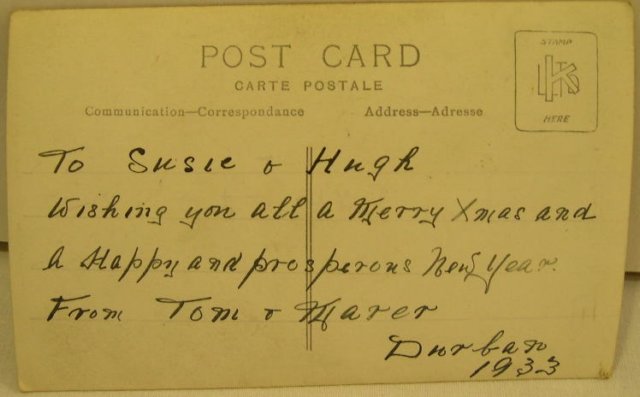 POST CARD
CARTE POSTALE
Communication—Correspondance Address—Adresse
STAMP
HERE
To Susie & Hugh
Wishing you all a Merry Xmas and
A Happy and prosperous New Year.
From Tom & Marer
Durban
1933